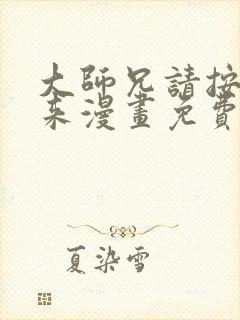 大師兄請按
来漫畫免費
夏染雪